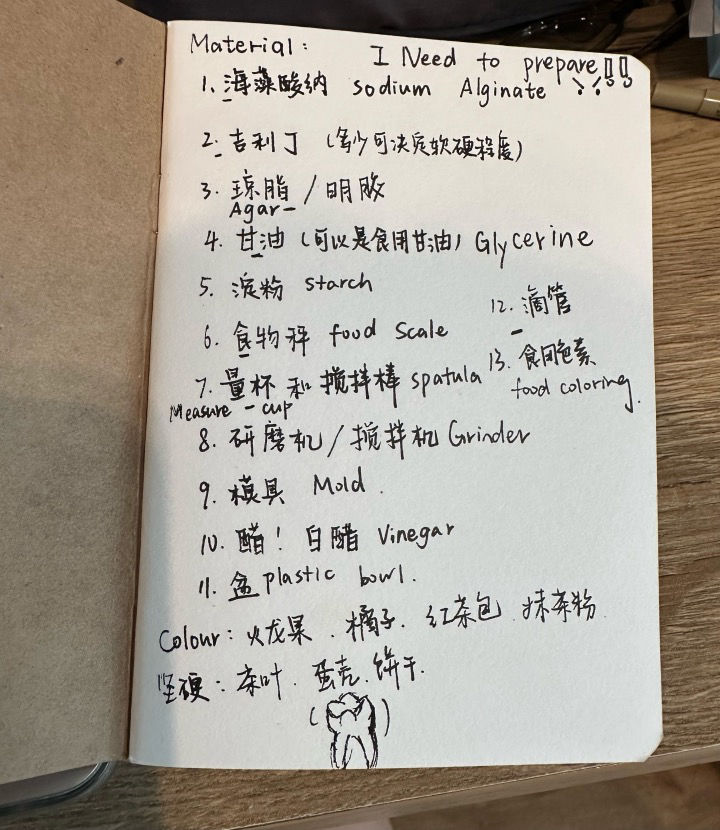 Material: I Need to prepare!!
1. 海藻酸纳 sodium Alginate
2. 吉利丁 (多少可决定软硬程度)
3. 琼脂 / 明胶
Agar
4. 甘油 (可以是食用甘油) Glycerine
5. 淀粉 starch
6. 食物秤 food scale
7. 量杯 和 搅拌棒 spatula
Measure - cup
8. 研磨机 / 搅拌机 Grinder
9. 模具 Mold.
10. 醋! 白醋 Vinegar
11. 盆 plastic bowl.
12. 滴管
13. 食用色素
food coloring.
Colour: 火龙果. 橘子. 红茶包. 抹茶粉.
坚硬: 茶叶. 蛋壳. 饼干.